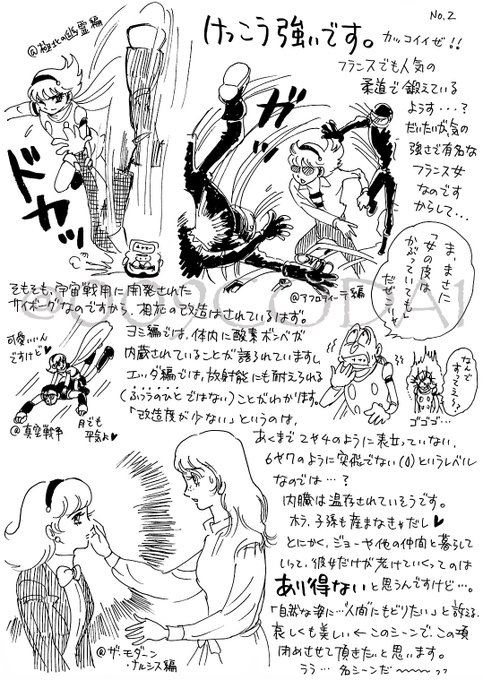 No.2
けっこう強いです。
カッコイイぜ!!
@極北の幽霊編
フランスでも人気の
柔道で鍛えている
ようす・・・?
だいたいが、気の
強さで有名な
フランス女
なのです
からして・・・
ドカッ
@アフロディーテ編
ま、まさに
女の皮は
かぶっていても
だぜ
なんで
すってぇ〜?
ゴゴゴ…
そもそも、宇宙戦用に開発された
サイボーグなのですから、相応の改造はされているはず。
ヨミ編では、体内に酸素ボンベが
内蔵されていることが語られていますし、
エッダ編では、放射能にも耐えられる
(ふつうのひとではない)ことがわかります。
「改造度が少ない」というのは、
可愛いいん
ですけど♥
月でも
平気よ♥
@真空戦争
あくまで2や4のように表立っていない、
6や7のように突飛でない(0)というレベル
なのでは…?
内臓は温存されていそうです。
ホラ、子孫も産まなきゃだし♥
とにかく、ジョーや他の仲間と暮らして
いって、彼女だけが老けていくってのは
あり得ないと思うんですけど…。
「自然な姿に…“人間”にもどりたい」と語る、
哀しくも美しい←このシーンで、この項
閉めさせて頂きたいと思います。
うう…名シーンだ〜〜〜っっ
@ザ・モダーン
・ナルシス編
@009CODA1